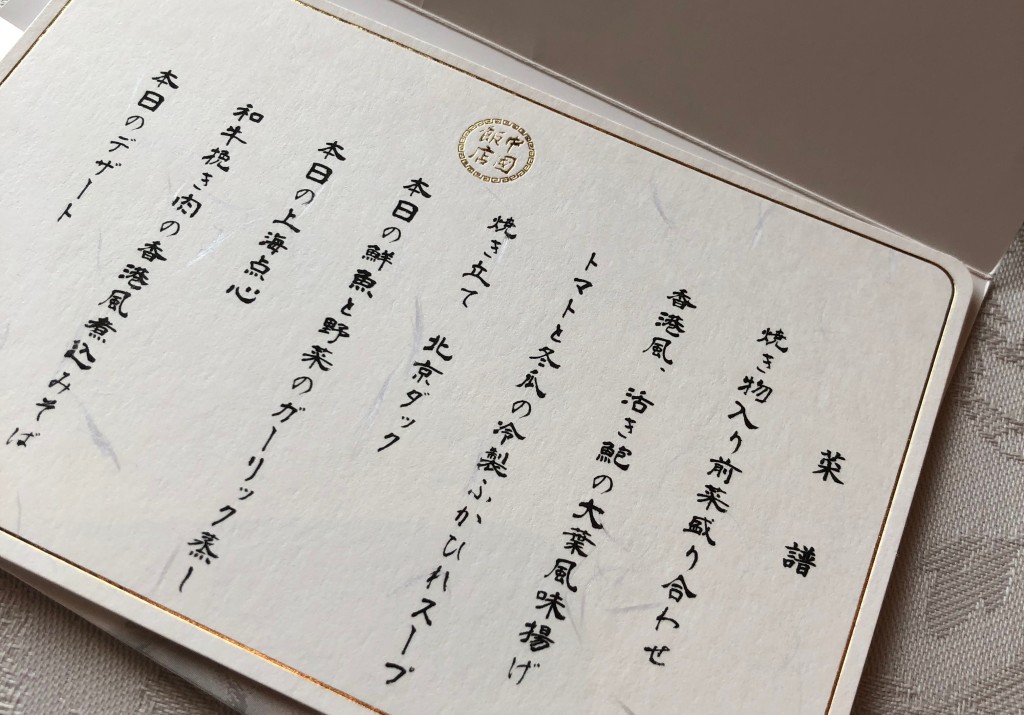 菜譜
焼き物入り前菜盛り合わせ
香港風、活き鮑の大葉風味揚げ
トマトと冬瓜の冷製ふかひれスープ
焼き立て 北京ダック
本日の鮮魚と野菜のガーリック蒸し
本日の上海点心
和牛挽き肉の香港風煮込みそば
本日のデザート
中国飯店